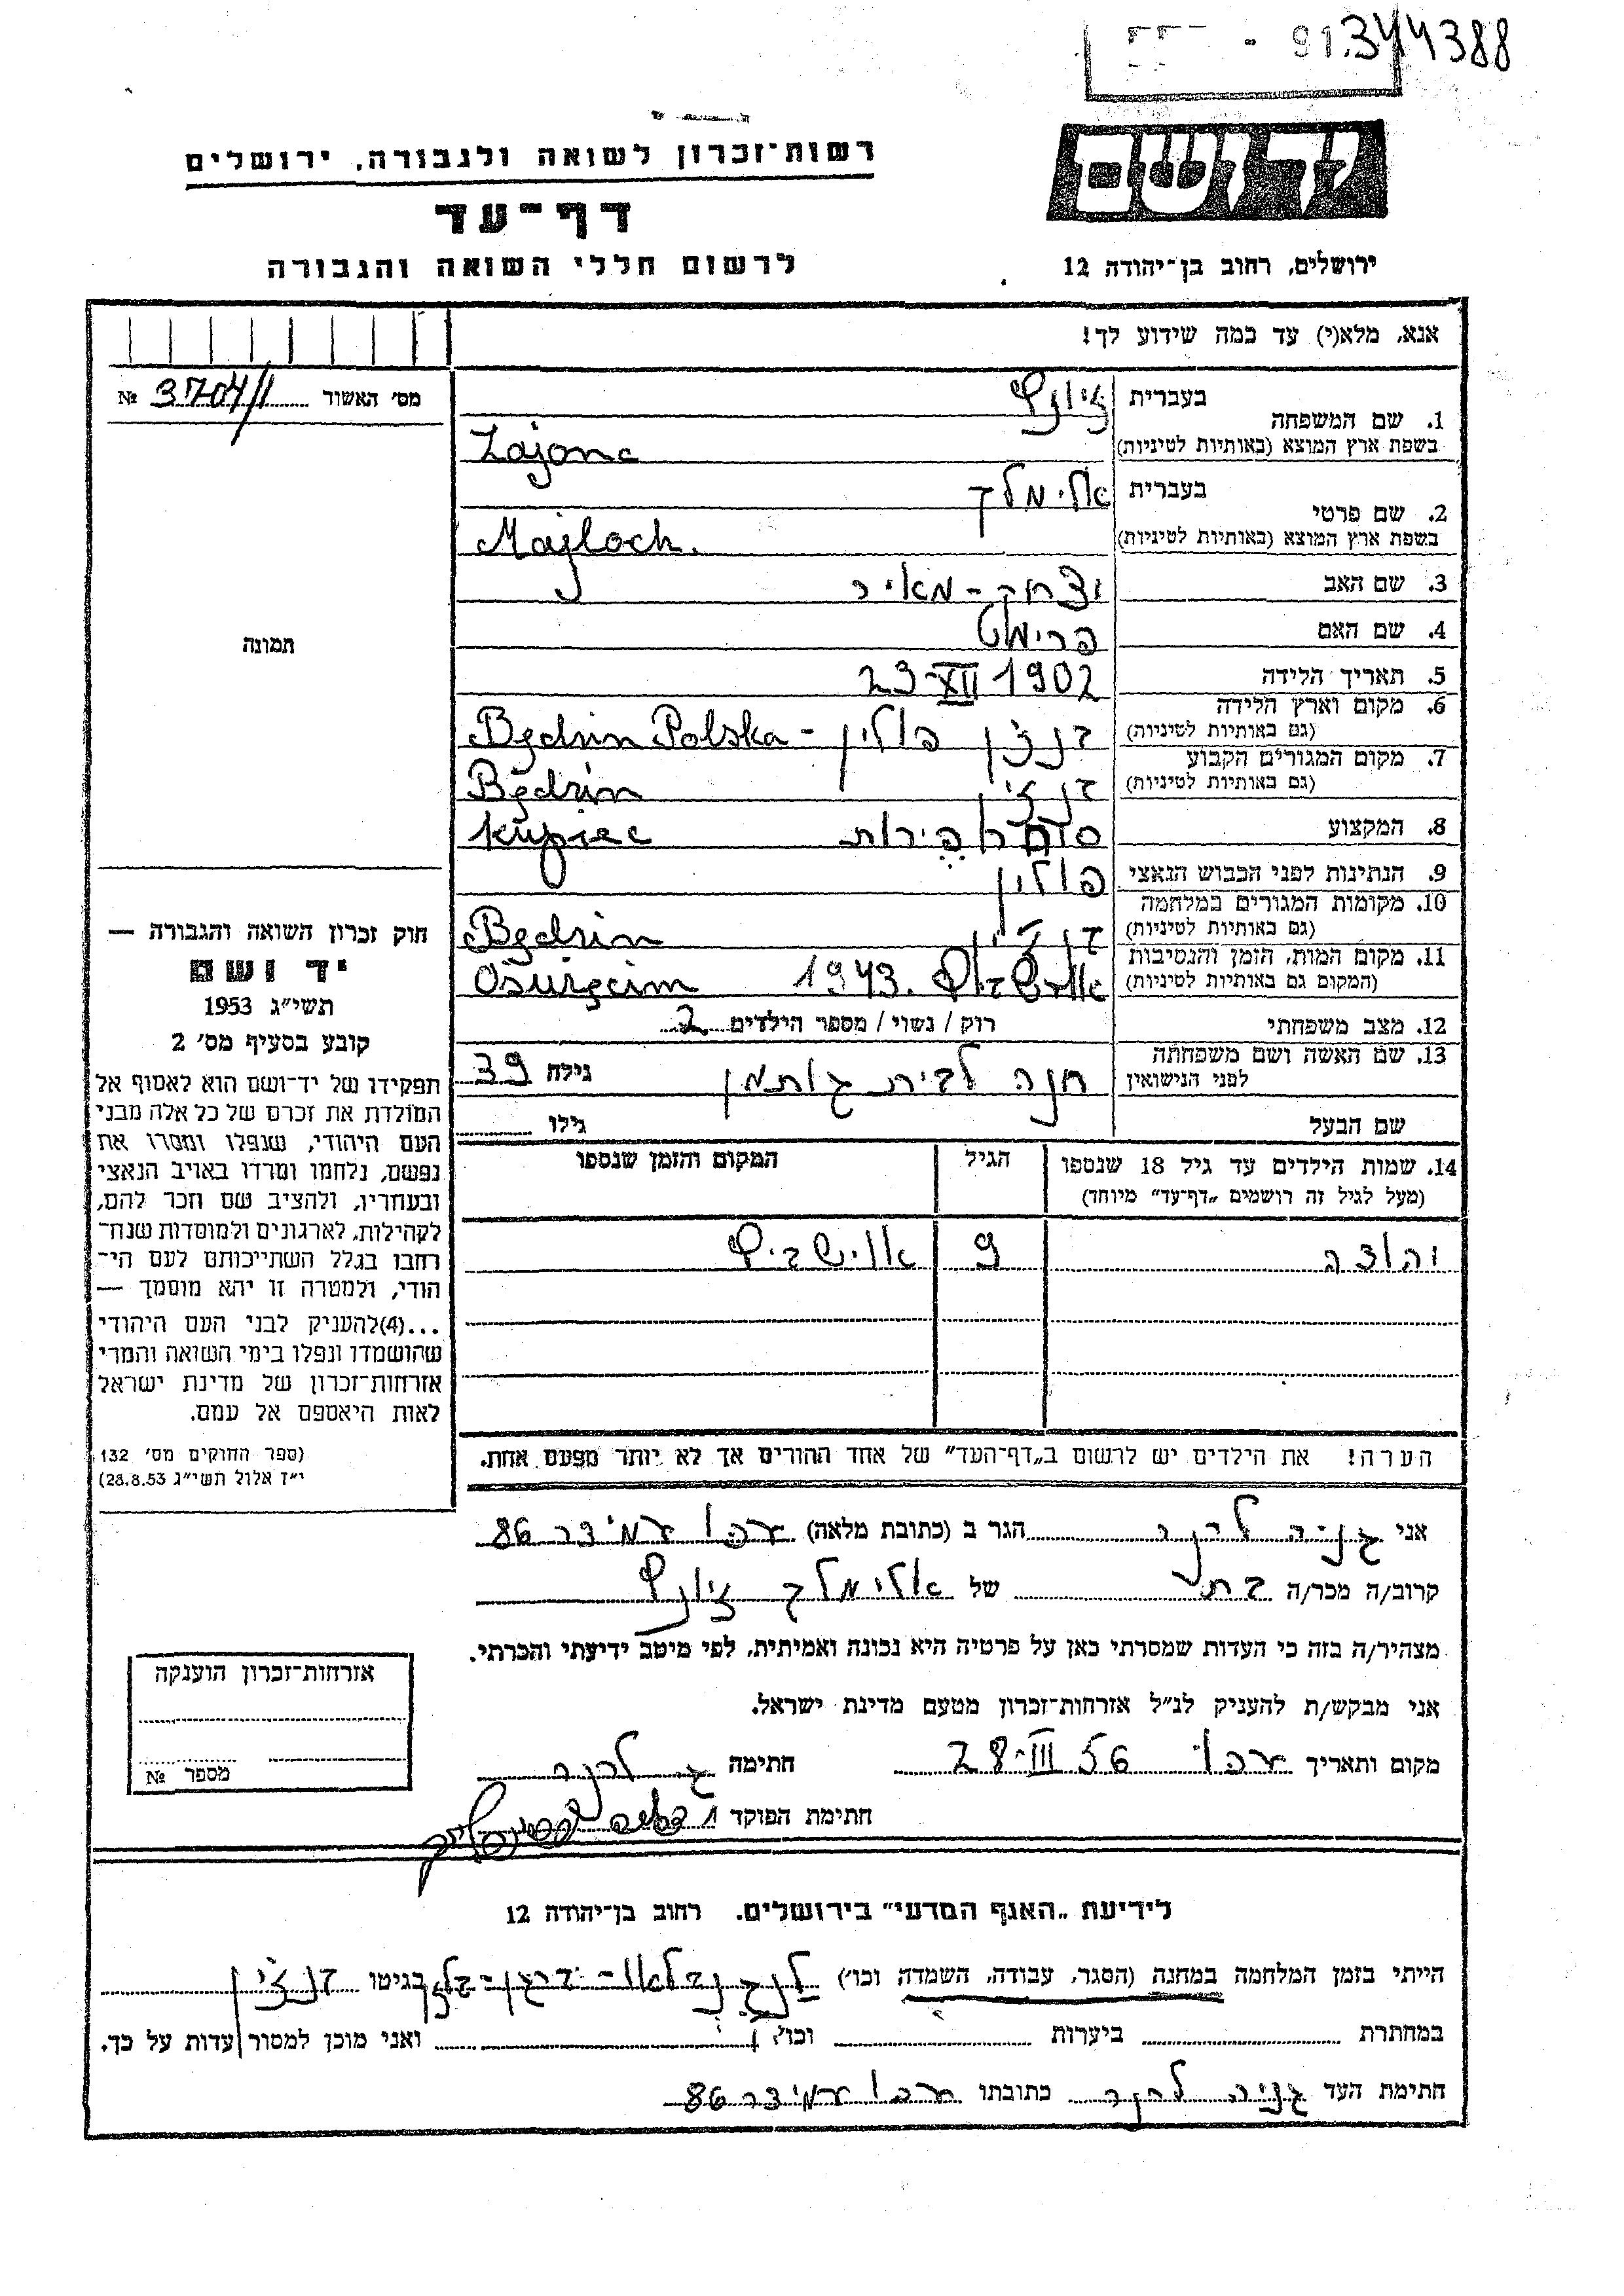 91.344388
יד ושם
רשות־זכרון לשואה ולגבורה, ירושלים
דף־עד
ירושלים, רחוב בן־יהודה 12
לרשום חללי השואה והגבורה
אנא, מלא(י) עד כמה שידוע לך!
מס' האשור 3704/1 №
תמונה
חוק זכרון השואה והגבורה —
יד ושם
תשי״ג 1953
קובע בסעיף מס' 2
תפקידו של יד־ושם הוא לאסוף אל
המולדת את זכרם של כל אלה מבני
העם היהודי, שנפלו ומסרו את
נפשם, נלחמו ומרדו באויב הנאצי
ובעוזריו, ולהציב שם וזכר להם,
לקהילות, לארגונים ולמוסדות שנח־
רבו בגלל השתייכותם לעם הי־
הודי, ולמטרה זו יהא מוסמך —
...(4)להעניק לבני העם היהודי
שהושמדו ונפלו בימי השואה והמרי
אזרחות־זכרון של מדינת ישראל
לאות היאספם אל עמם.
(ספר החוקים מס' 132
י״ז אלול תשי״ג 28.8.53)
1. שם המשפחה בעברית זיונץ
בשפת ארץ המוצא (באותיות לטיניות) Zajonc
2. שם פרטי בעברית אלימלך
בשפת ארץ המוצא (באותיות לטיניות) Majloch.
3. שם האב יצחק - מאיר
4. שם האם פרימט
5. תאריך הלידה 23-XII 1902
6. מקום וארץ הלידה בנצ'ן פולין - Będzin Polska
(גם באותיות לטיניות)
7. מקום המגורים הקבוע Będzin
(גם באותיות לטיניות)
8. המקצוע סוחר פירות Kupiec
9. הנתינות לפני הכבוש הנאצי פולין
10. מקומות המגורים במלחמה Będzin
(גם באותיות לטיניות)
11. מקום המות, הזמן והנסיבות אושביץ 1943. Oświęcim
(המקום גם באותיות לטיניות)
12. מצב משפחתי רוק / נשוי / מספר הילדים 2
13. שם האשה ושם משפחתה לפני הנישואין חנה לבית גוטמן גילה 39
שם הבעל גילו
14. שמות הילדים עד גיל 18 שנספו הגיל המקום והזמן שנספו
(מעל לגיל זה רושמים „דף־עד״ מיוחד)
9 אוישביץ
הערה! את הילדים יש לרשום ב„דף־העד״ של אחד ההורים אך לא יותר מפעם אחת.
אני גניה לרנר הגר ב (כתובת מלאה) עכו עמידר 86
קרוב/ה מכר/ה בת של אלימלך זיונץ
מצהיר/ה בזה כי העדות שמסרתי כאן על פרטיה היא נכונה ואמיתית, לפי מיטב ידיעתי והכרתי.
אני מבקש/ת להעניק לנ״ל אזרחות־זכרון מטעם מדינת ישראל.
מקום ותאריך עכו 28-III 56 חתימה ג. לרנר
חתימת הפוקד
אזרחות־זכרון הוענקה
מספר №
לידיעת „האגף המדעי״ בירושלים. רחוב בן־יהודה 12
הייתי בזמן המלחמה במחנה (הסגר, עבודה, השמדה וכו') בגיטו בנצ'ין
במחתרת ביערות וכו' ואני מוכן למסור עדות על כך.
חתימת העד גניה לרנר כתובתו עכו עמידר 86